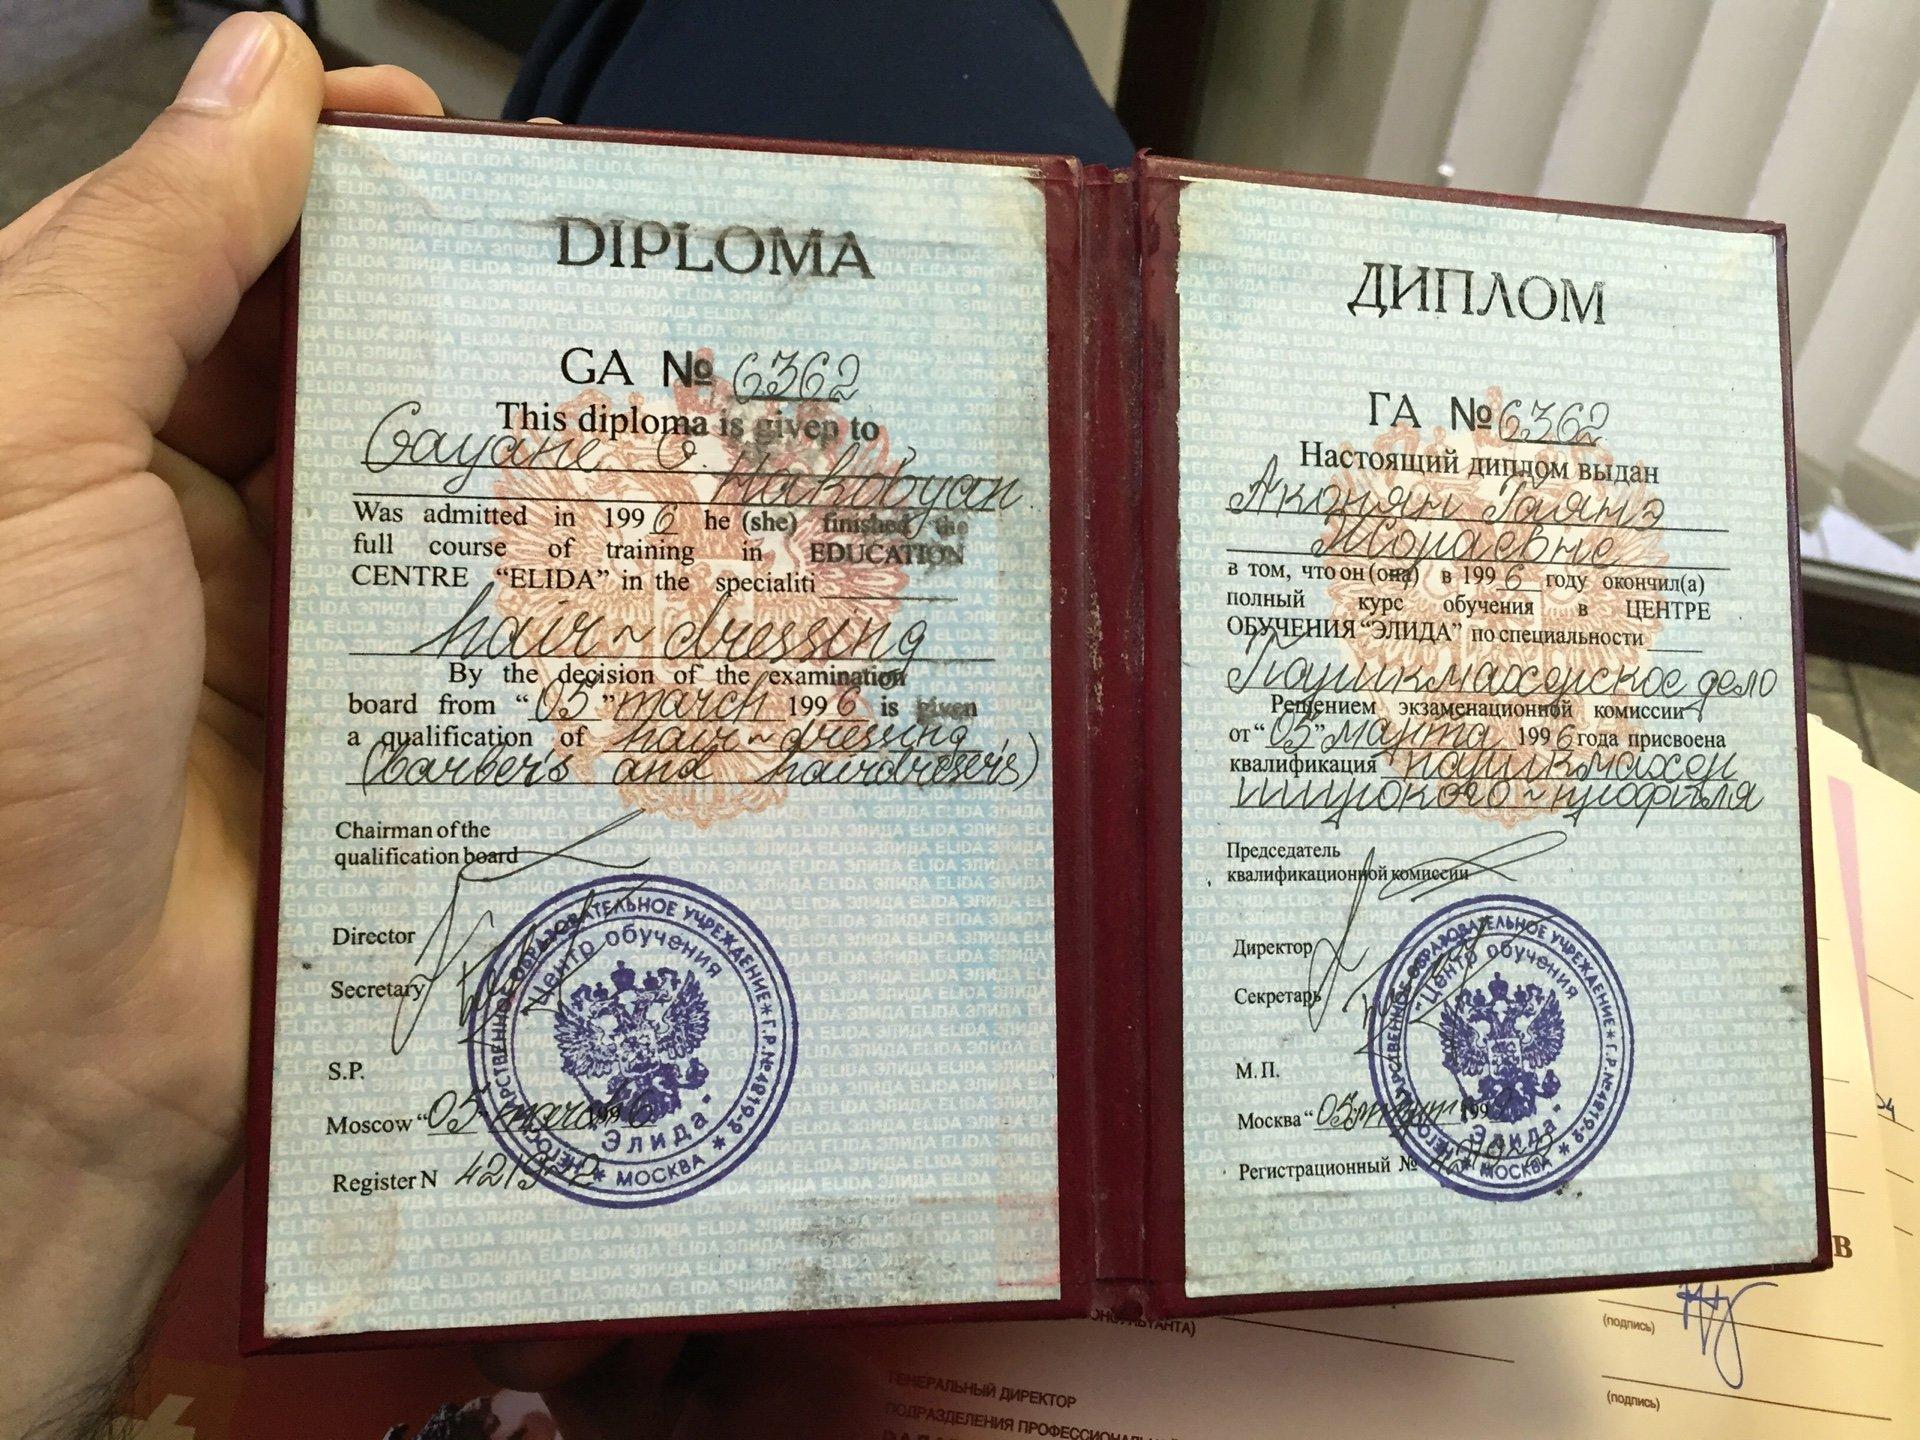 DIPLOMA
GA № 6362
This diploma is given to
Gayane G. Hakobyan
Was admitted in 1996 he (she) finished the
full course of training in EDUCATION
CENTRE "ELIDA" in the specialiti
hair~dressing
By the decision of the examination
board from "05" march 1996 is given
a qualification of hair~dressing
(barber's and hairdresser's)
Chairman of the
qualification board
Director
Secretary
S.P.
Moscow "05" march 1996
Register N
НЕГОСУДАРСТВЕННОЕ ОБРАЗОВАТЕЛЬНОЕ УЧРЕЖДЕНИЕ * Г.Р.№4919-9 * МОСКВА *
"Центр обучения
Элида"
ДИПЛОМ
ГА № 6362
Настоящий диплом выдан
Акопян Гаянэ
Жораевне
в том, что он (она) в 1996 году окончил(а)
полный курс обучения в ЦЕНТРЕ
ОБУЧЕНИЯ "ЭЛИДА" по специальности
Парикмахерское дело
Решением экзаменационной комиссии
от "05" марта 1996 года присвоена
квалификация парикмахер
широкого~профиля
Председатель
квалификационной комиссии
Директор
Секретарь
М.П.
Москва "05" марта 199
Регистрационный №
НЕГОСУДАРСТВЕННОЕ ОБРАЗОВАТЕЛЬНОЕ УЧРЕЖДЕНИЕ * Г.Р.№4919-9 * МОСКВА *
"Центр обучения
Элида"
В
(подпись)
(подпись)
ГЕНЕРАЛЬНЫЙ ДИРЕКТОР
ПОДРАЗДЕЛЕНИЯ